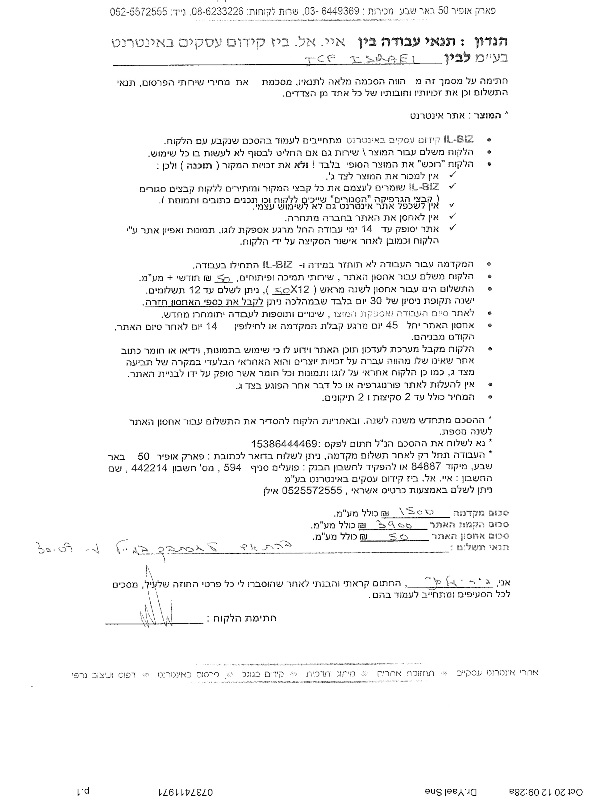 פארק אופיר 50 באר שבע. מכירות : 6449369-03, שרות לקוחות: 08-6233226, נייד: 052-5572555
הנדון : תנאי עבודה בין איי. אל. ביז קידום עסקים באינטרנט
בע"מ לבין TCF ISRAEL
חתימה על מסמך זה מ הווה הסכמה מלאה לתנאיו, מסכמת את מחירי שירותי הפרסום, תנאי
התשלום וכן את זכויותיו וחובותיו של כל אחד מן הצדדים.
* המוצר : אתר אינטרנט
IL-BIZ קידום עסקים באינטרנט מתחייבים לעמוד בהסכם שנקבע עם הלקוח.
הלקוח משלם עבור המוצר \ שירות גם אם החליט לבסוף לא לעשות בו כל שימוש.
הלקוח "רוכש" את המוצר הסופי בלבד ! ולא את זכויות המקור ( תוכנה ) ולכן :
✓ אין למכור את המוצר לצד ג'.
✓ IL-BIZ שומרים לעצמם את כל קבצי המקור ומותירים ללקוח קבצים סגורים
( קבצי הגרפיקה "הסגורים" שייכים ללקוח וכן תכנים כתובים ותמונות ).
✓ אין לשכפל אתר אינטרנט גם לא לשימוש עצמי.
✓ אין לאחסן את האתר בחברה מתחרה.
✓ אתר יסופק עד 14 ימי עבודה החל מרגע אספקת לוגו. תמונות ואפיון אתר ע"י
הלקוח וכמובן לאחר אישור הסקיצה על ידי הלקוח.
המקדמה עבור העבודה לא תוחזר במידה ו- IL-BIZ התחילו בעבודה.
הלקוח משלם עבור אחסון האתר , שירותי תמיכה ופיתוחים, 50 ₪ חודשי + מע"מ.
התשלום הינו עבור אחסון לשנה מראש ( 50X12 ), ניתן לשלם עד 12 תשלומים.
ישנה תקופת ניסיון של 30 יום בלבד שבמהלכה ניתן לקבל את כספי האחסון חזרה.
לאחר סיום העבודה שאספקת המוצר , שינויים ותוספות לעבודה יתומחרו מחדש.
אחסון האתר יחל 45 יום מרגע קבלת המקדמה או לחילופין 14 יום לאחר סיום האתר,
הקודם מבניהם.
הלקוח מקבל מערכת לעדכון תוכן האתר וידוע לו כי שימוש בתמונות, וידיאו או חומר כתוב
אתר שאינו שלו מהווה עברה על זכויות יוצרים והוא האחראי הבלעדי במקרה של תביעה
מצד ג, כמו כן הלקוח אחראי על לוגו ותמונות וכל חומר אשר סופק על ידו לבניית האתר.
אין להעלות לאתר פורנוגרפיה או כל דבר אחר הפוגע בצד ג.
המחיר כולל עד 2 סקיצות ו 2 תיקונים.
* ההסכם מתחדש משנה לשנה. ובאחריות הלקוח להסדיר את התשלום עבור אחסון האתר
לשנה נוספת.
* נא לשלוח את ההסכם הנ"ל חתום לפקס :15386444469
* העבודה תחל רק לאחר תשלום מקדמה, ניתן לשלוח בדואר לכתובת : פארק אופיר 50 באר
שבע, מיקוד 84887 או להפקיד לחשבון הבנק : פועלים סניף 594 , מס' חשבון 442214 , שם
החשבון : איי. אל. ביז קידום עסקים באינטרנט בע"מ
ניתן לשלם באמצעות כרטיס אשראי , 0525572555 אילן
סכום מקדמה 1500 ₪ כולל מע"מ.
סכום הקמת האתר 3900 ₪ כולל מע"מ.
סכום אחסון האתר 50 ₪ כולל מע"מ.
תנאי תשלום : 30.09
אני, , החתום קראתי והבנתי לאחר שהוסברו לי כל פרטי החוזה שלעיל, מסכים
לכל הסעיפים ומתחייב לעמוד בהם.
חתימת הלקוח :
אתרי אינטרנט עסקיים תחזוקת אתרים מיתוג תדמית קידום בגוגל פרסום באינטרנט דפוס ועיצוב גרפי
Oct 20 12 09:28a Dr. Yael Sne 0737411971 p.1